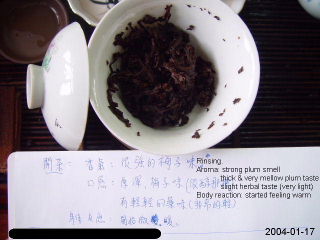 開茶: 香氣: 很强的梅子味
Rinsing
Aroma: strong plum smell
thick & very mellow plum taste
口感: 厚滑, 梅子味
slight herbal taste (very light)
有輕輕的藥味 (非常的輕)
Body reaction: started feeling warm
開始微暖。
2004-01-17